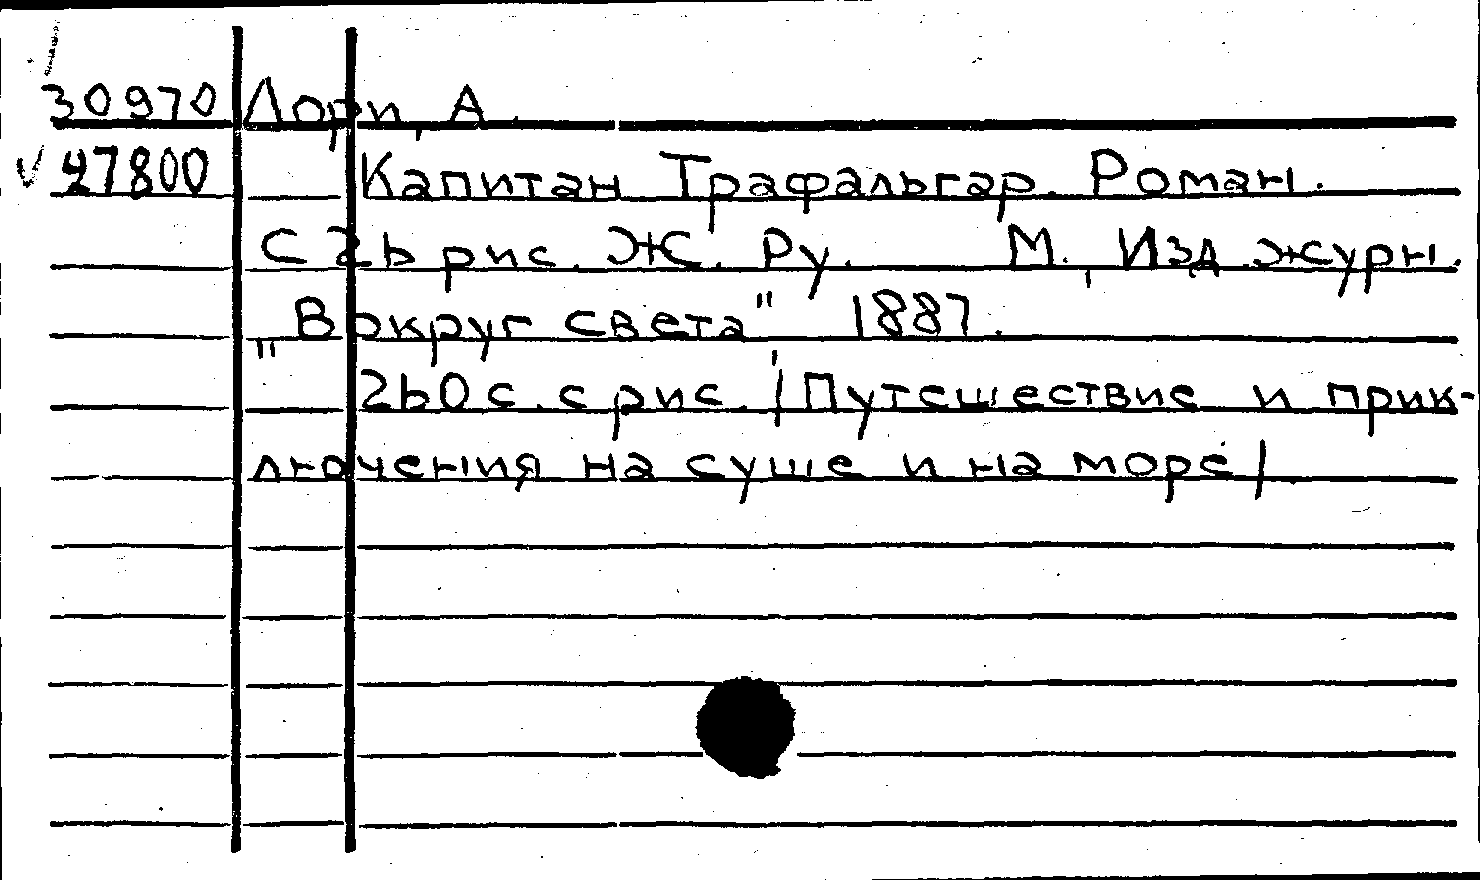 30970 Лори, А.
47800 Капитан Трафальгар. Роман.
С 26 рис. Ж. Ру. М., Изд. журн.
"Вокруг света" 1887.
260 с. с рис. /Путешествие и прик-
лючения на суше и на море/.